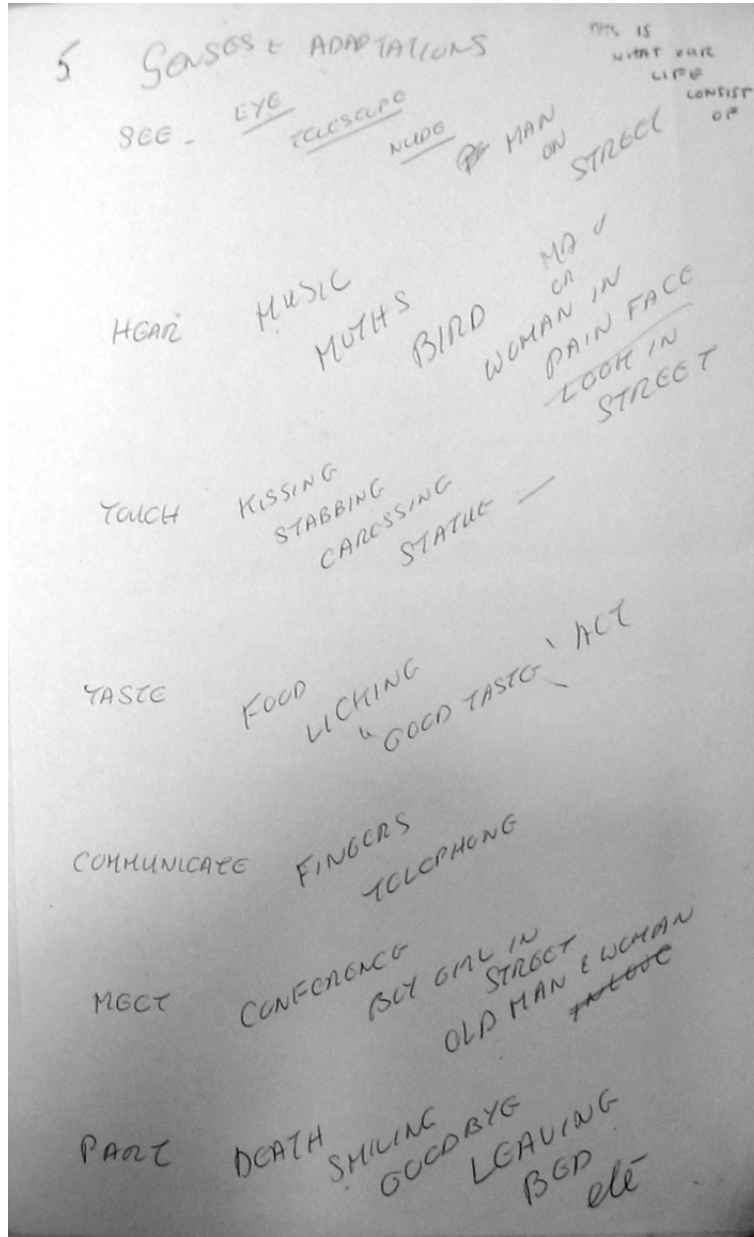 5 SENSES & ADAPTATIONS
THIS IS
WHAT OUR
LIFE
CONSIST
OF
SEE - EYE
TELESCOPE
NUDE
MAN
ON
STREET
HEAR MUSIC
MOTHS
BIRD
MAN
OR
WOMAN IN
PAIN FACE
LOOK IN
STREET
TOUCH KISSING
STABBING
CARESSING
STATUE —
TASTE FOOD
LICKING
"GOOD TASTE" ACT
COMMUNICATE FINGERS
TELEPHONE
MEET CONFERENCE
BOY GIRL IN
STREET
OLD MAN & WOMAN
IN LOVE
PART DEATH
SMILING
GOODBYE
LEAVING
BED
etc